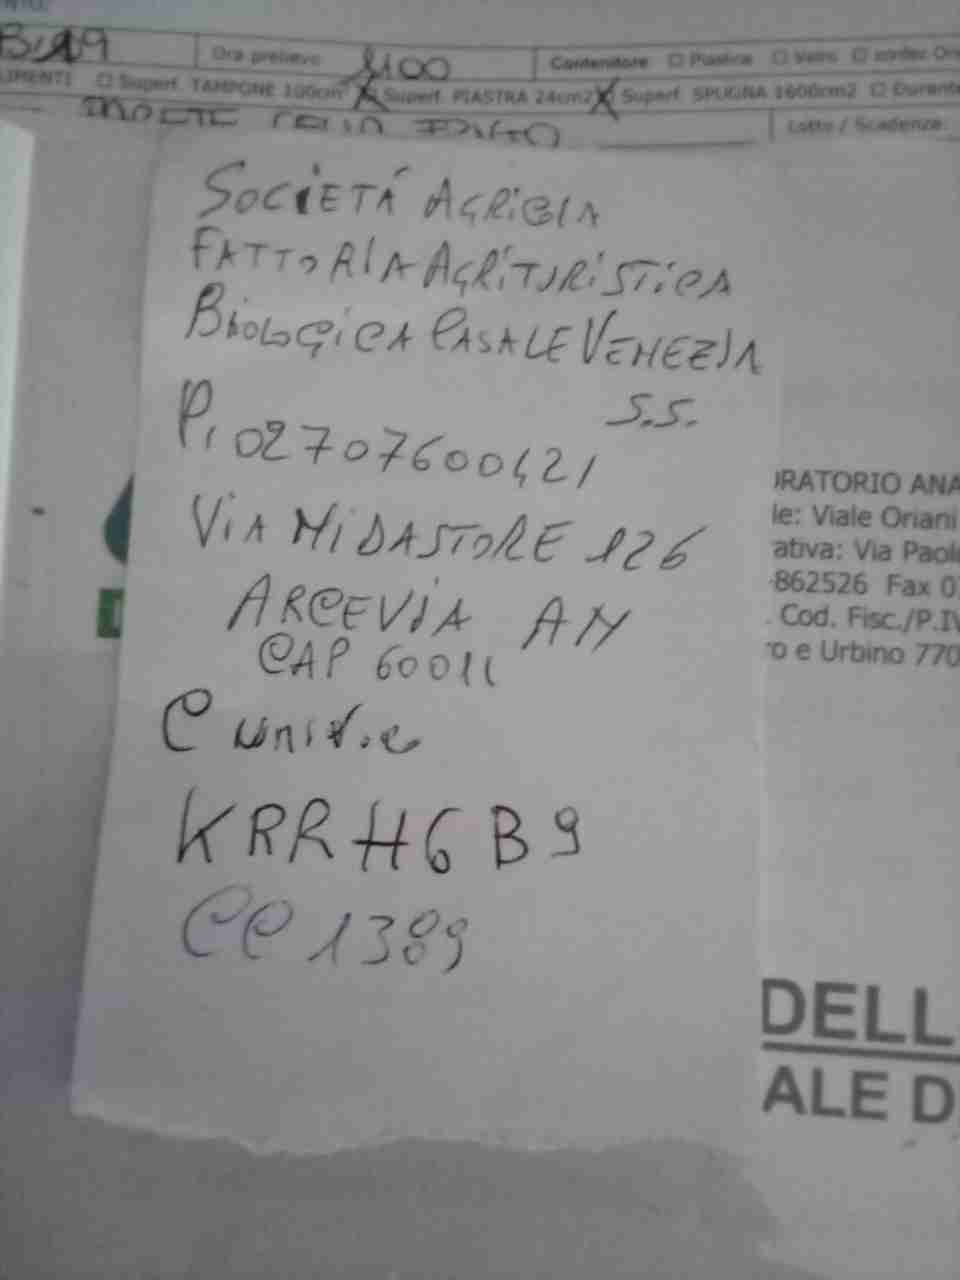 Ora prelievo 8100 Contenitore □ Plastica □ Vetro
□ Superf. TAMPONE 100cm² X Superf. PIASTRA 24cm2 X Superf. SPUGNA 1600cm2 □ Durante
Lotto / Scadenza:
SOCIETÁ AGRICOLA
FATTORIA AGRITURISTICA
BIOLOGICA CASALE VENEZIA
S.S.
P, 02707600421
VIA MIDASTORE 126
ARCEVIA AN
CAP 60011
C
KRRH6B9
CC 1389
ORATORIO ANA
le: Viale Oriani
ativa: Via Paol
862526 Fax 0
. Cod. Fisc./P.IV
o e Urbino 770
DELL
ALE D